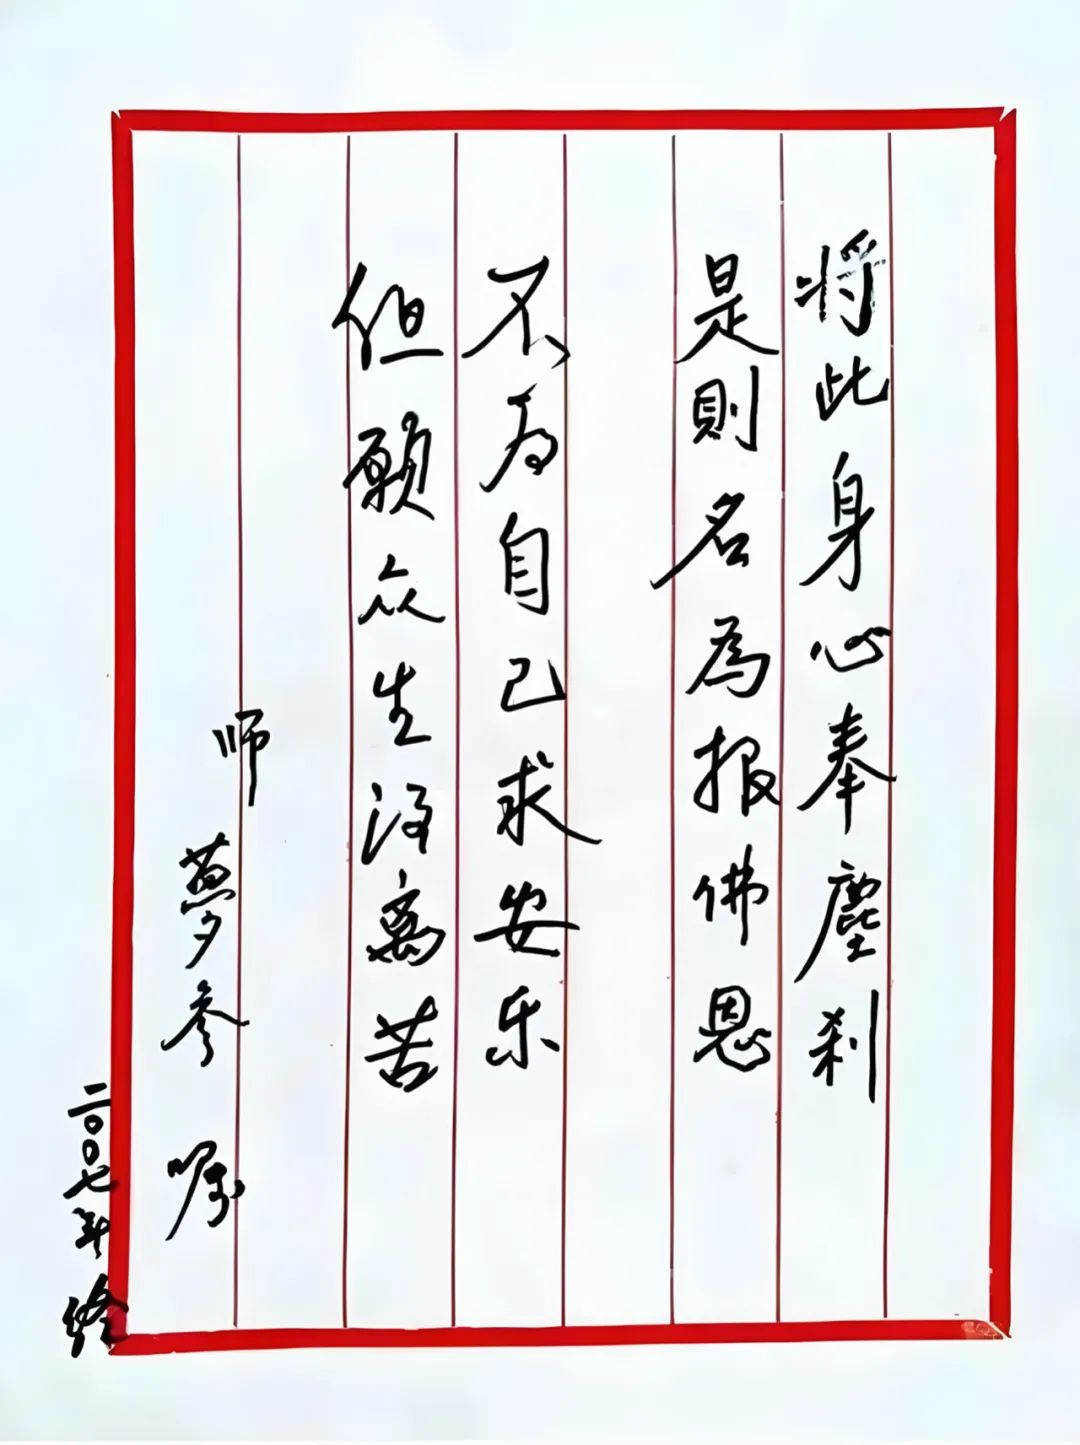 将此身心奉塵刹
是則名為报佛恩
不为自己求安乐
但願众生得离苦
师
夢参 嘱
二00七年